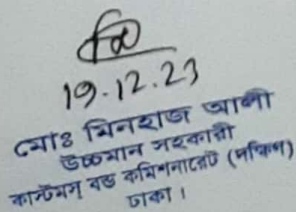 19.12.23
মোঃ মিনহাজ আলী
উচ্চমান সহকারী
কাস্টমস বন্ড কমিশনারেট (দক্ষিণ)
ঢাকা।